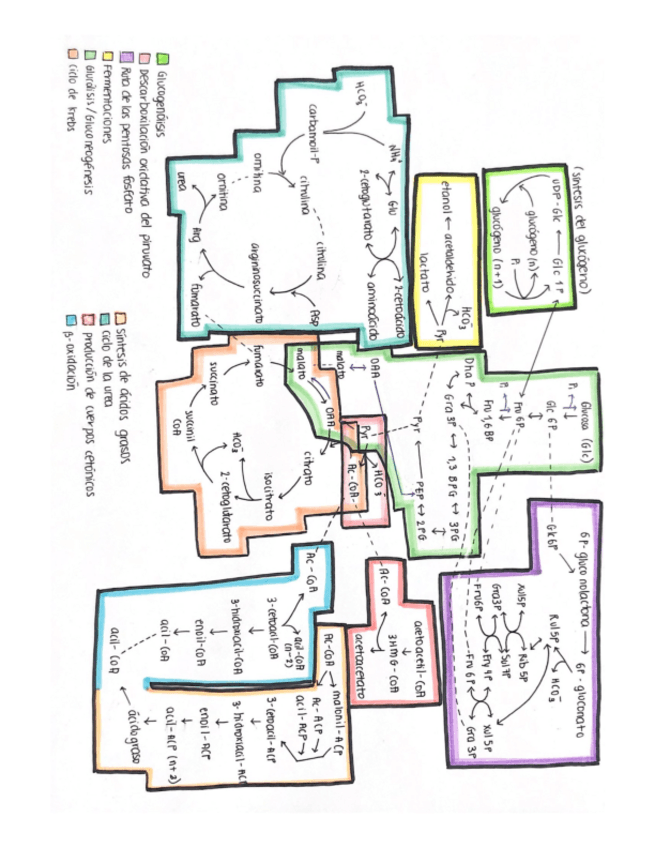 (síntesis del glucógeno)
UDP-Glc
Glc 1P
glucógeno (n)
Pi
glucógeno (n+1)
etanol
acetaldehido
HCO3-
lactato
Pyr
HCO3-
NH4
carbamoil-P
Glu
2-cetoglutarato
2-cetoácido
aminoácido
ornitina
citrulina
ornitina
citrulina
urea
Asp
argininosuccinato
Arg
fumarato
Glucosa (Glc)
Pi
Glc 6P
Fru 6P
Pi
Fru 1,6 BP
Dha P
Gra 3P
1,3 BPG
3PG
2 PG
PEP
Pyr
OAA
malato
malato
OAA
fumarato
succinato
succinil
CoA
2-cetoglutarato
HCO3-
isocitrato
citrato
Pyr
HCO3-
Ac-CoA
6P-gluconolactona
6P-gluconato
Glc6P
HCO3-
Rul5P
Xul5P
Rib 5P
Gra3P
Sul 7P
Fru6P
Ery 4P
Xul 5P
Fru 6P
Gra 3P
Ac-CoA
acetoacetil-CoA
3HMG-CoA
acetoacetato
Ac-CoA
acil-CoA
(n-2)
3-cetoacil-CoA
3-hidroxiacil-CoA
enoil-CoA
acil-CoA
acil-CoA
Ac-CoA
malonil-ACP
Ac-ACP
acil-ACP
3-cetoacil-ACP
3-hidroxiacil-ACP
enoil-ACP
acil-ACP (n+2)
ácido graso
Glucogenólisis
Descarboxilación oxidativa del piruvato
Ruta de las pentosas fosfato
Fermentaciones
Glucólisis/Gluconeogénesis
Ciclo de Krebs
Síntesis de ácidos grasos
ciclo de la urea
producción de cuerpos cetónicos
β-oxidación